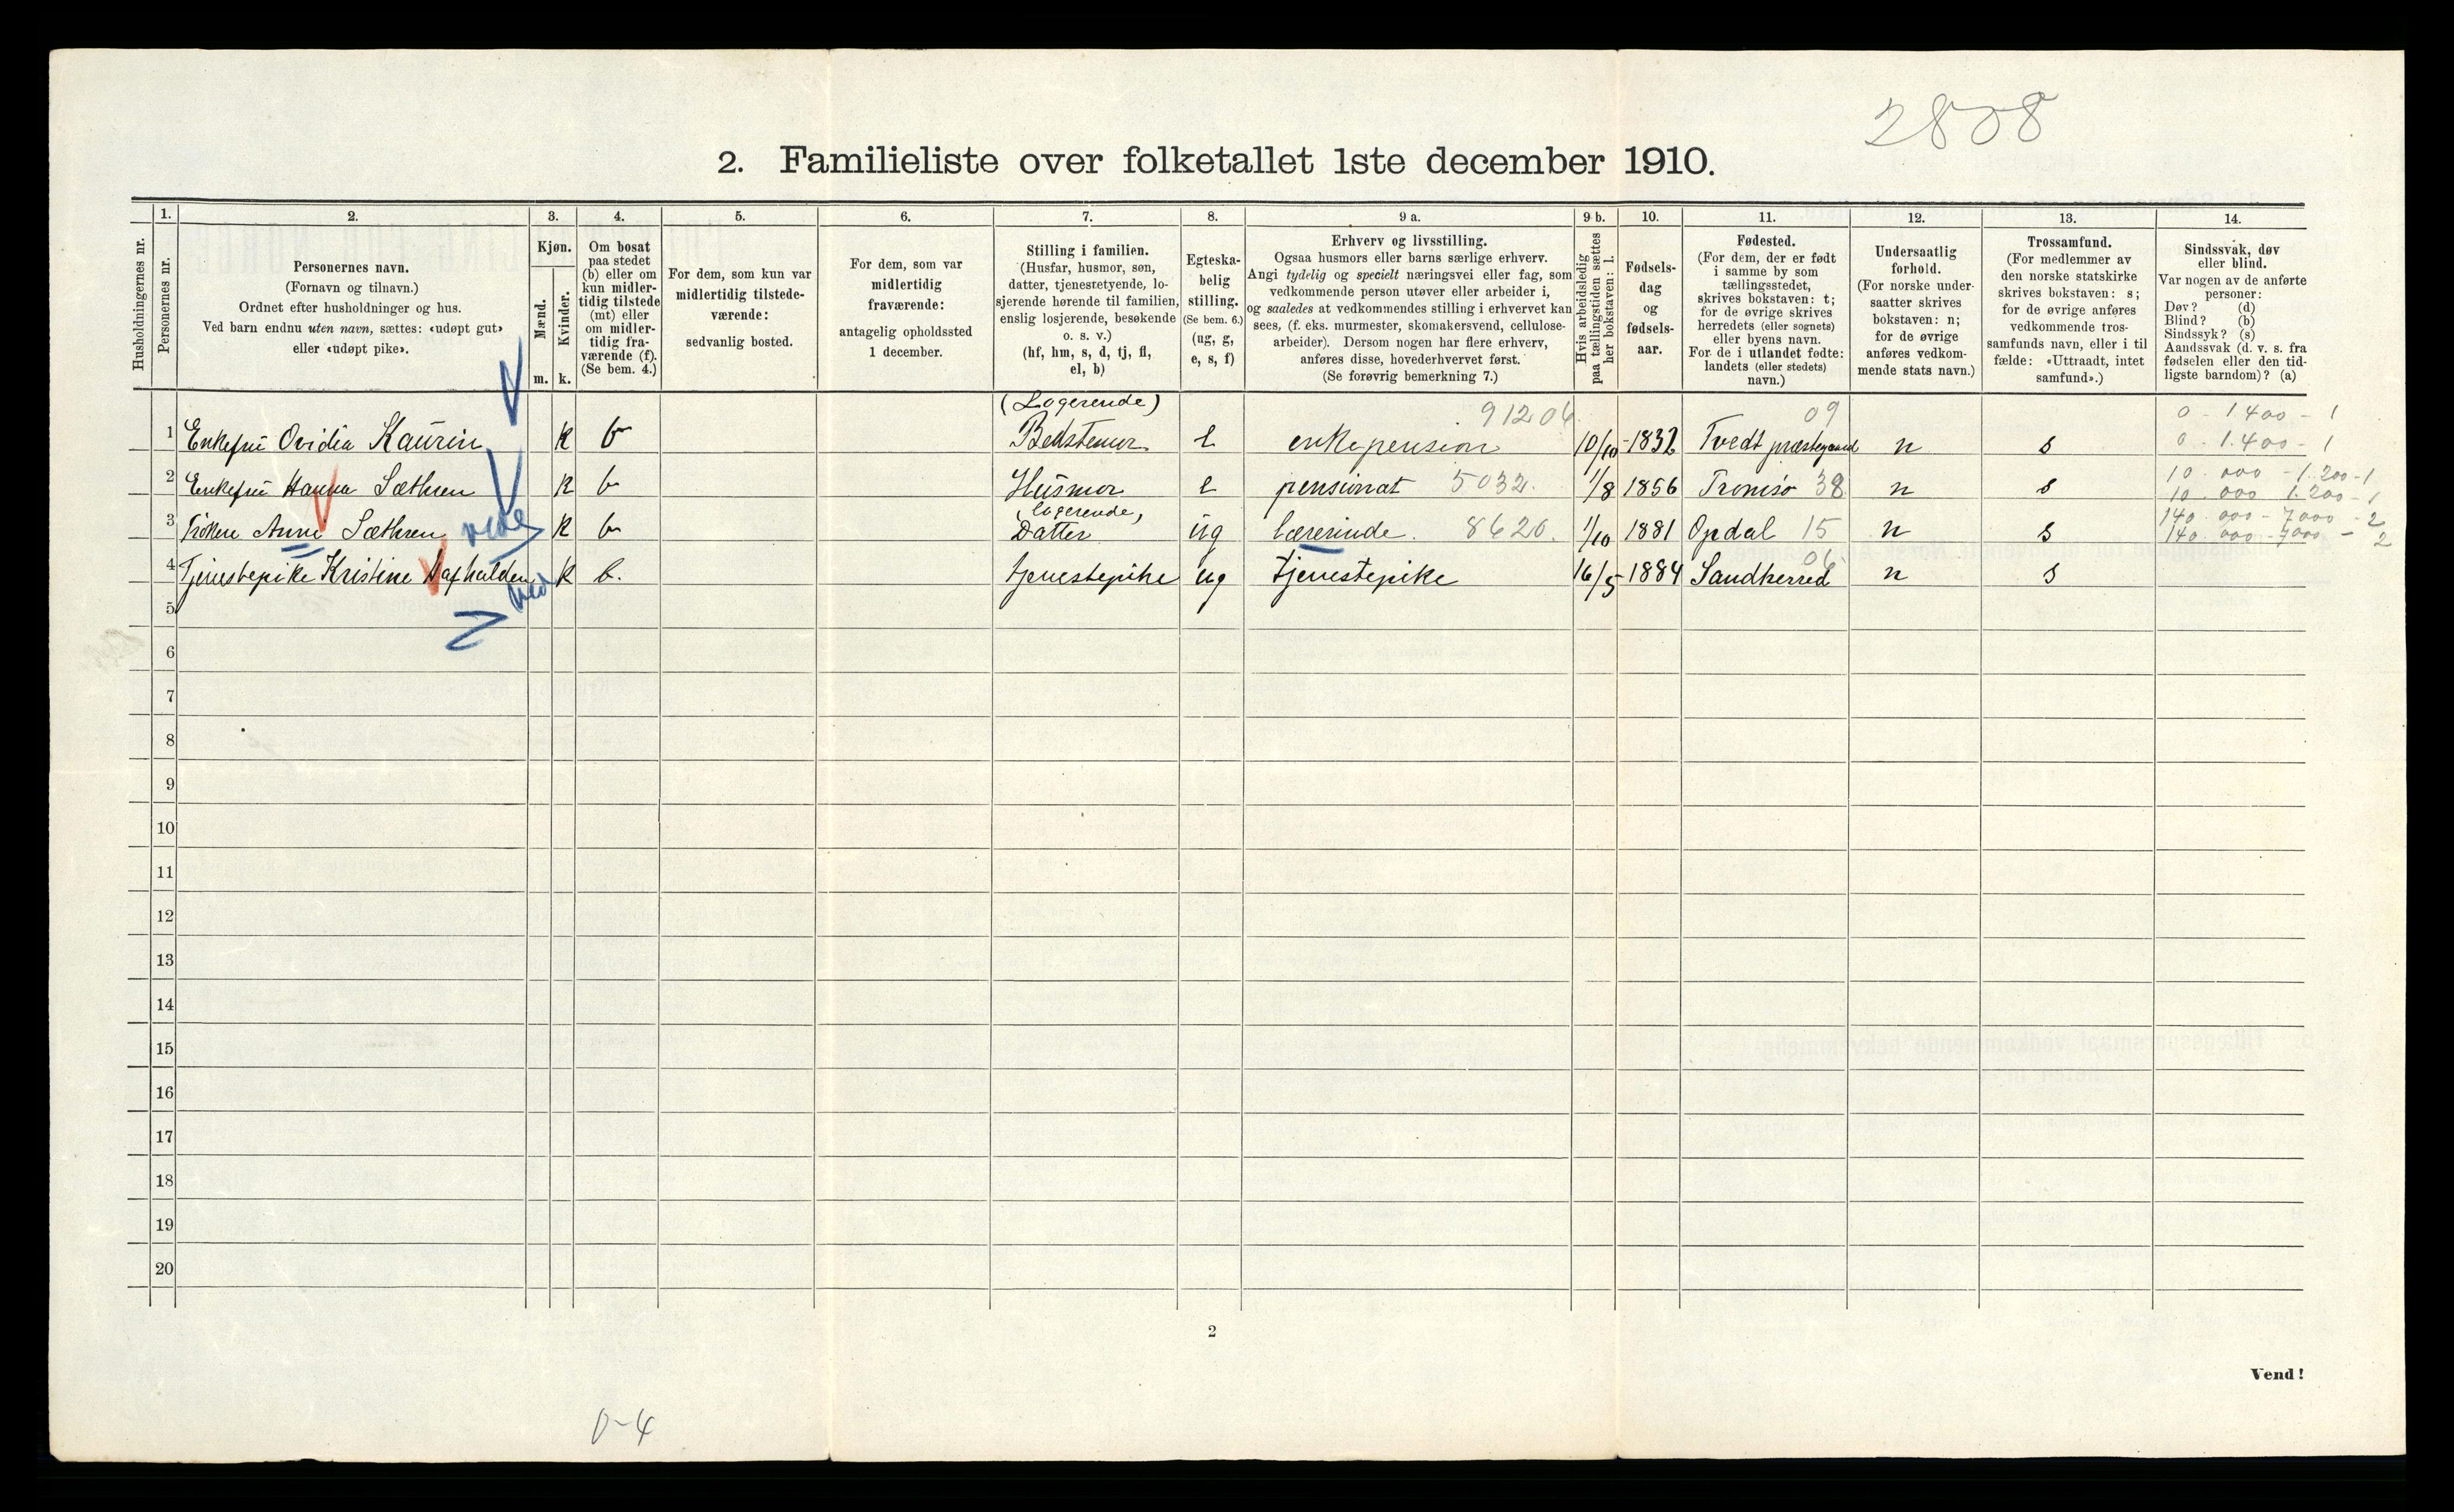 2808
2. Familieliste over folketallet 1ste december 1910.
1. 2. 3. 4. 5. 6. 7. 8. 9 a. 9 b. 10. 11. 12. 13. 14.
Husholdningernes nr.
Personernes nr.
Personernes navn.
(Fornavn og tilnavn.)
Ordnet efter husholdninger og hus.
Ved barn endnu uten navn, sættes: «udøpt gut»
eller «udøpt pike».
Kjøn.
Mænd.
m.
Kvinder.
k.
Om bosat
paa stedet
(b) eller om
kun midler-
tidig tilstede
(mt) eller
om midler-
tidig fra-
værende (f).
(Se bem. 4.)
For dem, som kun var
midlertidig tilstede-
værende:
sedvanlig bosted.
For dem, som var
midlertidig
fraværende:
antagelig opholdssted
1 december.
Stilling i familien.
(Husfar, husmor, søn,
datter, tjenestetyende, lo-
sjerende hørende til familien,
enslig losjerende, besøkende
o. s. v.)
(hf, hm, s, d, tj, fl,
el, b)
Egteska-
belig
stilling.
(Se bem. 6.)
(ug, g,
e, s, f)
Erhverv og livsstilling.
Ogsaa husmors eller barns særlige erhverv.
Angi tydelig og specielt næringsvei eller fag, som
vedkommende person utøver eller arbeider i,
og saaledes at vedkommendes stilling i erhvervet kan
sees, (f. eks. murmester, skomakersvend, cellulose-
arbeider). Dersom nogen har flere erhverv,
anføres disse, hovederhvervet først.
(Se forøvrig bemerkning 7.)
Hvis arbeidsledig
paa tællingstiden sættes
her bokstaven: l.
Fødsels-
dag
og
fødsels-
aar.
Fødested.
(For dem, der er født
i samme by som
tællingsstedet,
skrives bokstaven: t;
for de øvrige skrives
herredets (eller sognets)
eller byens navn.
For de i utlandet fødte:
landets (eller stedets)
navn.)
Undersaatlig
forhold.
(For norske under-
saatter skrives
bokstaven: n;
for de øvrige
anføres vedkom-
mende stats navn.)
Trossamfund.
(For medlemmer av
den norske statskirke
skrives bokstaven: s;
for de øvrige anføres
vedkommende tros-
samfunds navn, eller i til
fælde: «Uttraadt, intet
samfund».)
Sindssvak, døv
eller blind.
Var nogen av de anførte
personer:
Døv? (d)
Blind? (b)
Sindssyk? (s)
Aandssvak (d. v. s. fra
fødselen eller den tid-
ligste barndom)? (a)
(Logerende) 91206 09 0 - 1.400 - 1
1 Enkefru Ovidia Kaurin k b Bedstemor e enkepension 10/10 -1832 Tvedt præstegaard n s 0 - 1.400 - 1
10 000 - 1.200 - 1
2 Enkefru Hanna Sæthren k b Husmor e pensionat 5032. 1/8 1856 Tromsø 38 n s 10 000 1.200 - 1
logerende, 140 000 - 7000 - 2
3 Frøken Anni Sæthren k b Datter ug lærerinde. 8620. 1/10 1881 Opdal 15 n s 140 000 - 7000 - 2
06
4 Tjenestepike Kristine Hafhalden k b. tjenestepike ug tjenestepike 16/5 -1884 Sandherred n s
5
6
7
8
9
10
11
12
13
14
15
16
17
18
19
20
2
Vend!
0-4